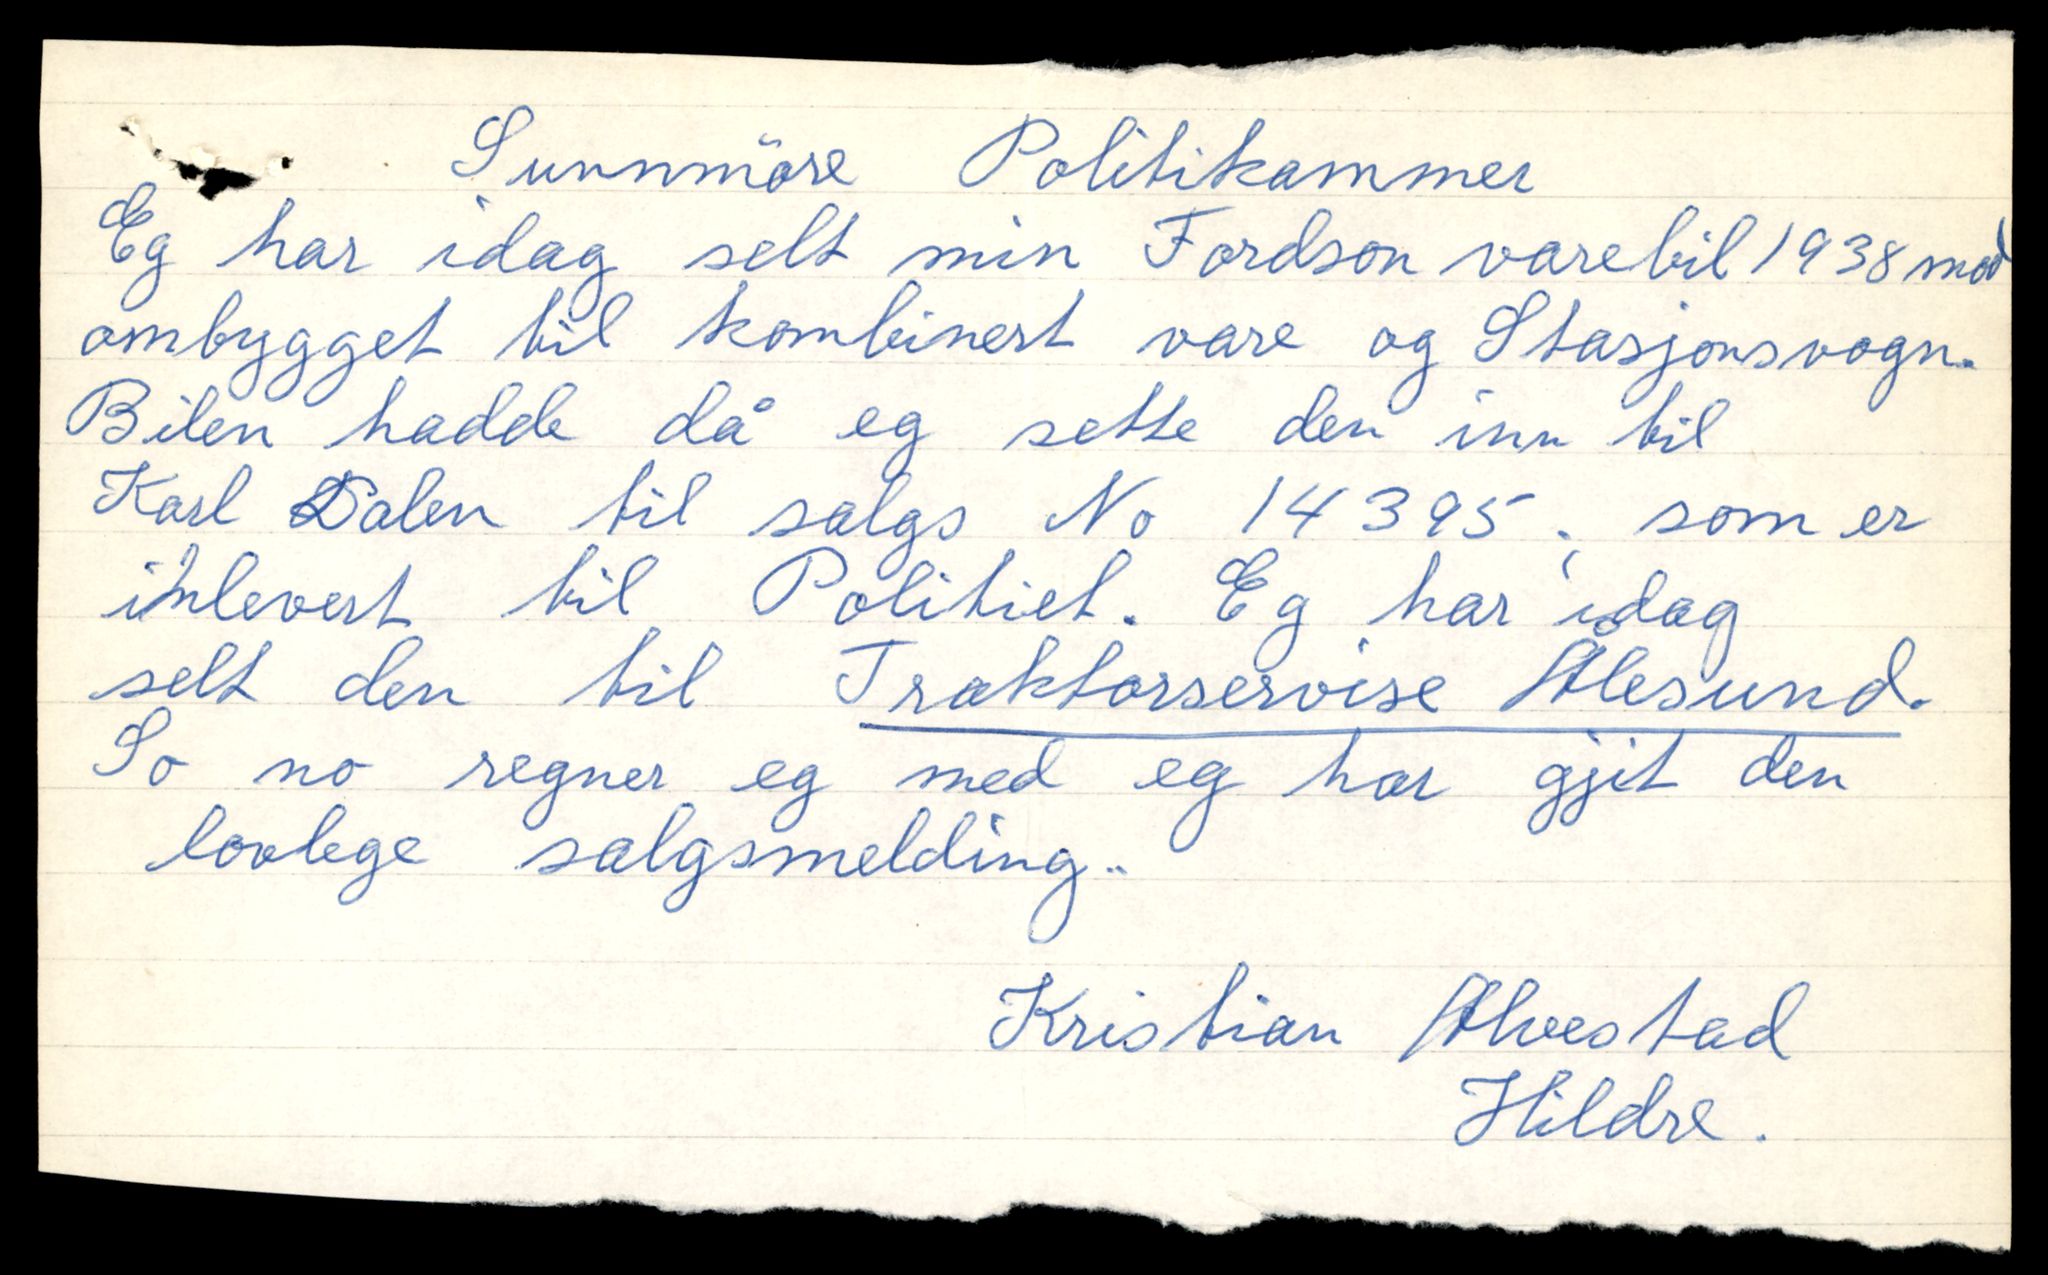 Sunnmöre Politikammer
Eg har idag selt min Fordson varebil 1938 mod
ombygget til kombinert vare og Stasjonsvogn.
Bilen hadde då eg sette den inn til
Karl Dalen til salgs No 14395; som er
inlevert til Politiet. Eg har idag
selt den til Traktorservise Ålesund.
So no regner eg med eg har gjit den
lovlege salgsmelding..
Kristian Alvestad
Hildre.